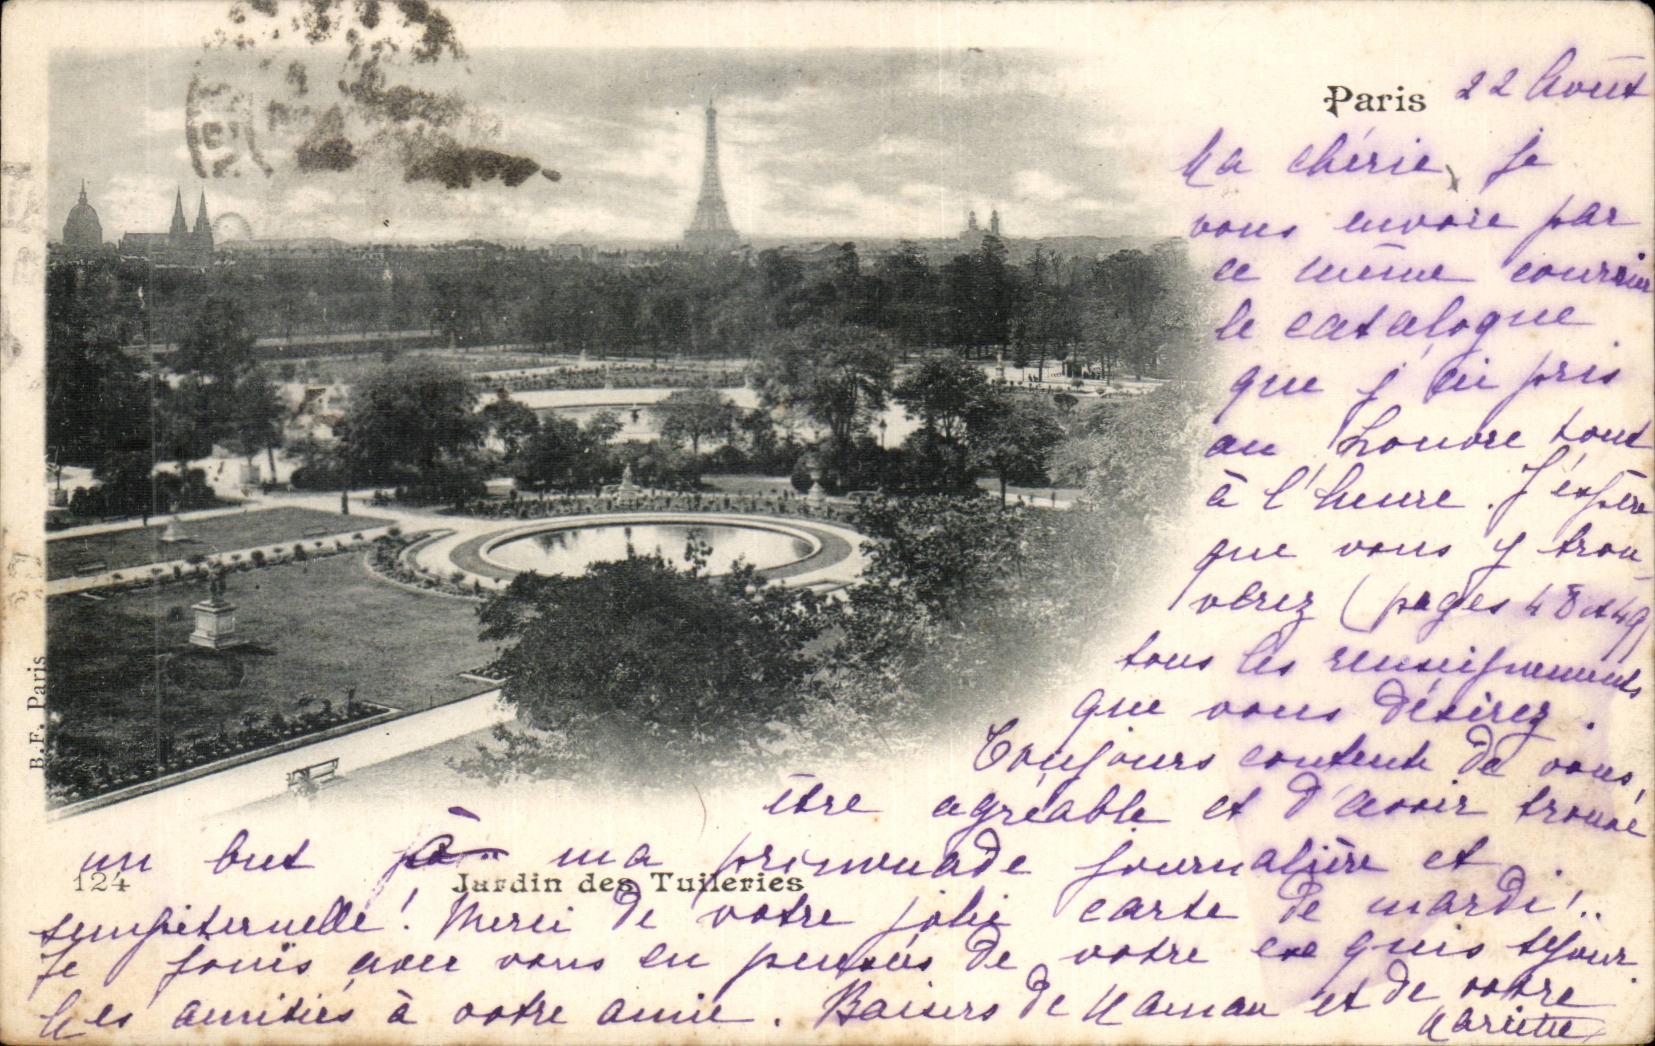 Paris 22 Août
Ma chérie, je
vous envoie par
ce même courrier
le catalogue
que j'ai pris
au Louvre tout
à l'heure. J'espère
que vous y trou-
verez (pages 48 et 49)
tous les renseignements
que vous désirez.
Toujours contente de vous
être agréable et d'avoir trouvé
un but à ma promenade journalière et
124 Jardin des Tuileries
sempiternelle! Merci de votre jolie carte de mardi!..
Je jouis avec vous en pensées de votre exquis séjour.
Mes amitiés à votre amie. Baisers de Maman et de votre
Mariette
B.F. Paris